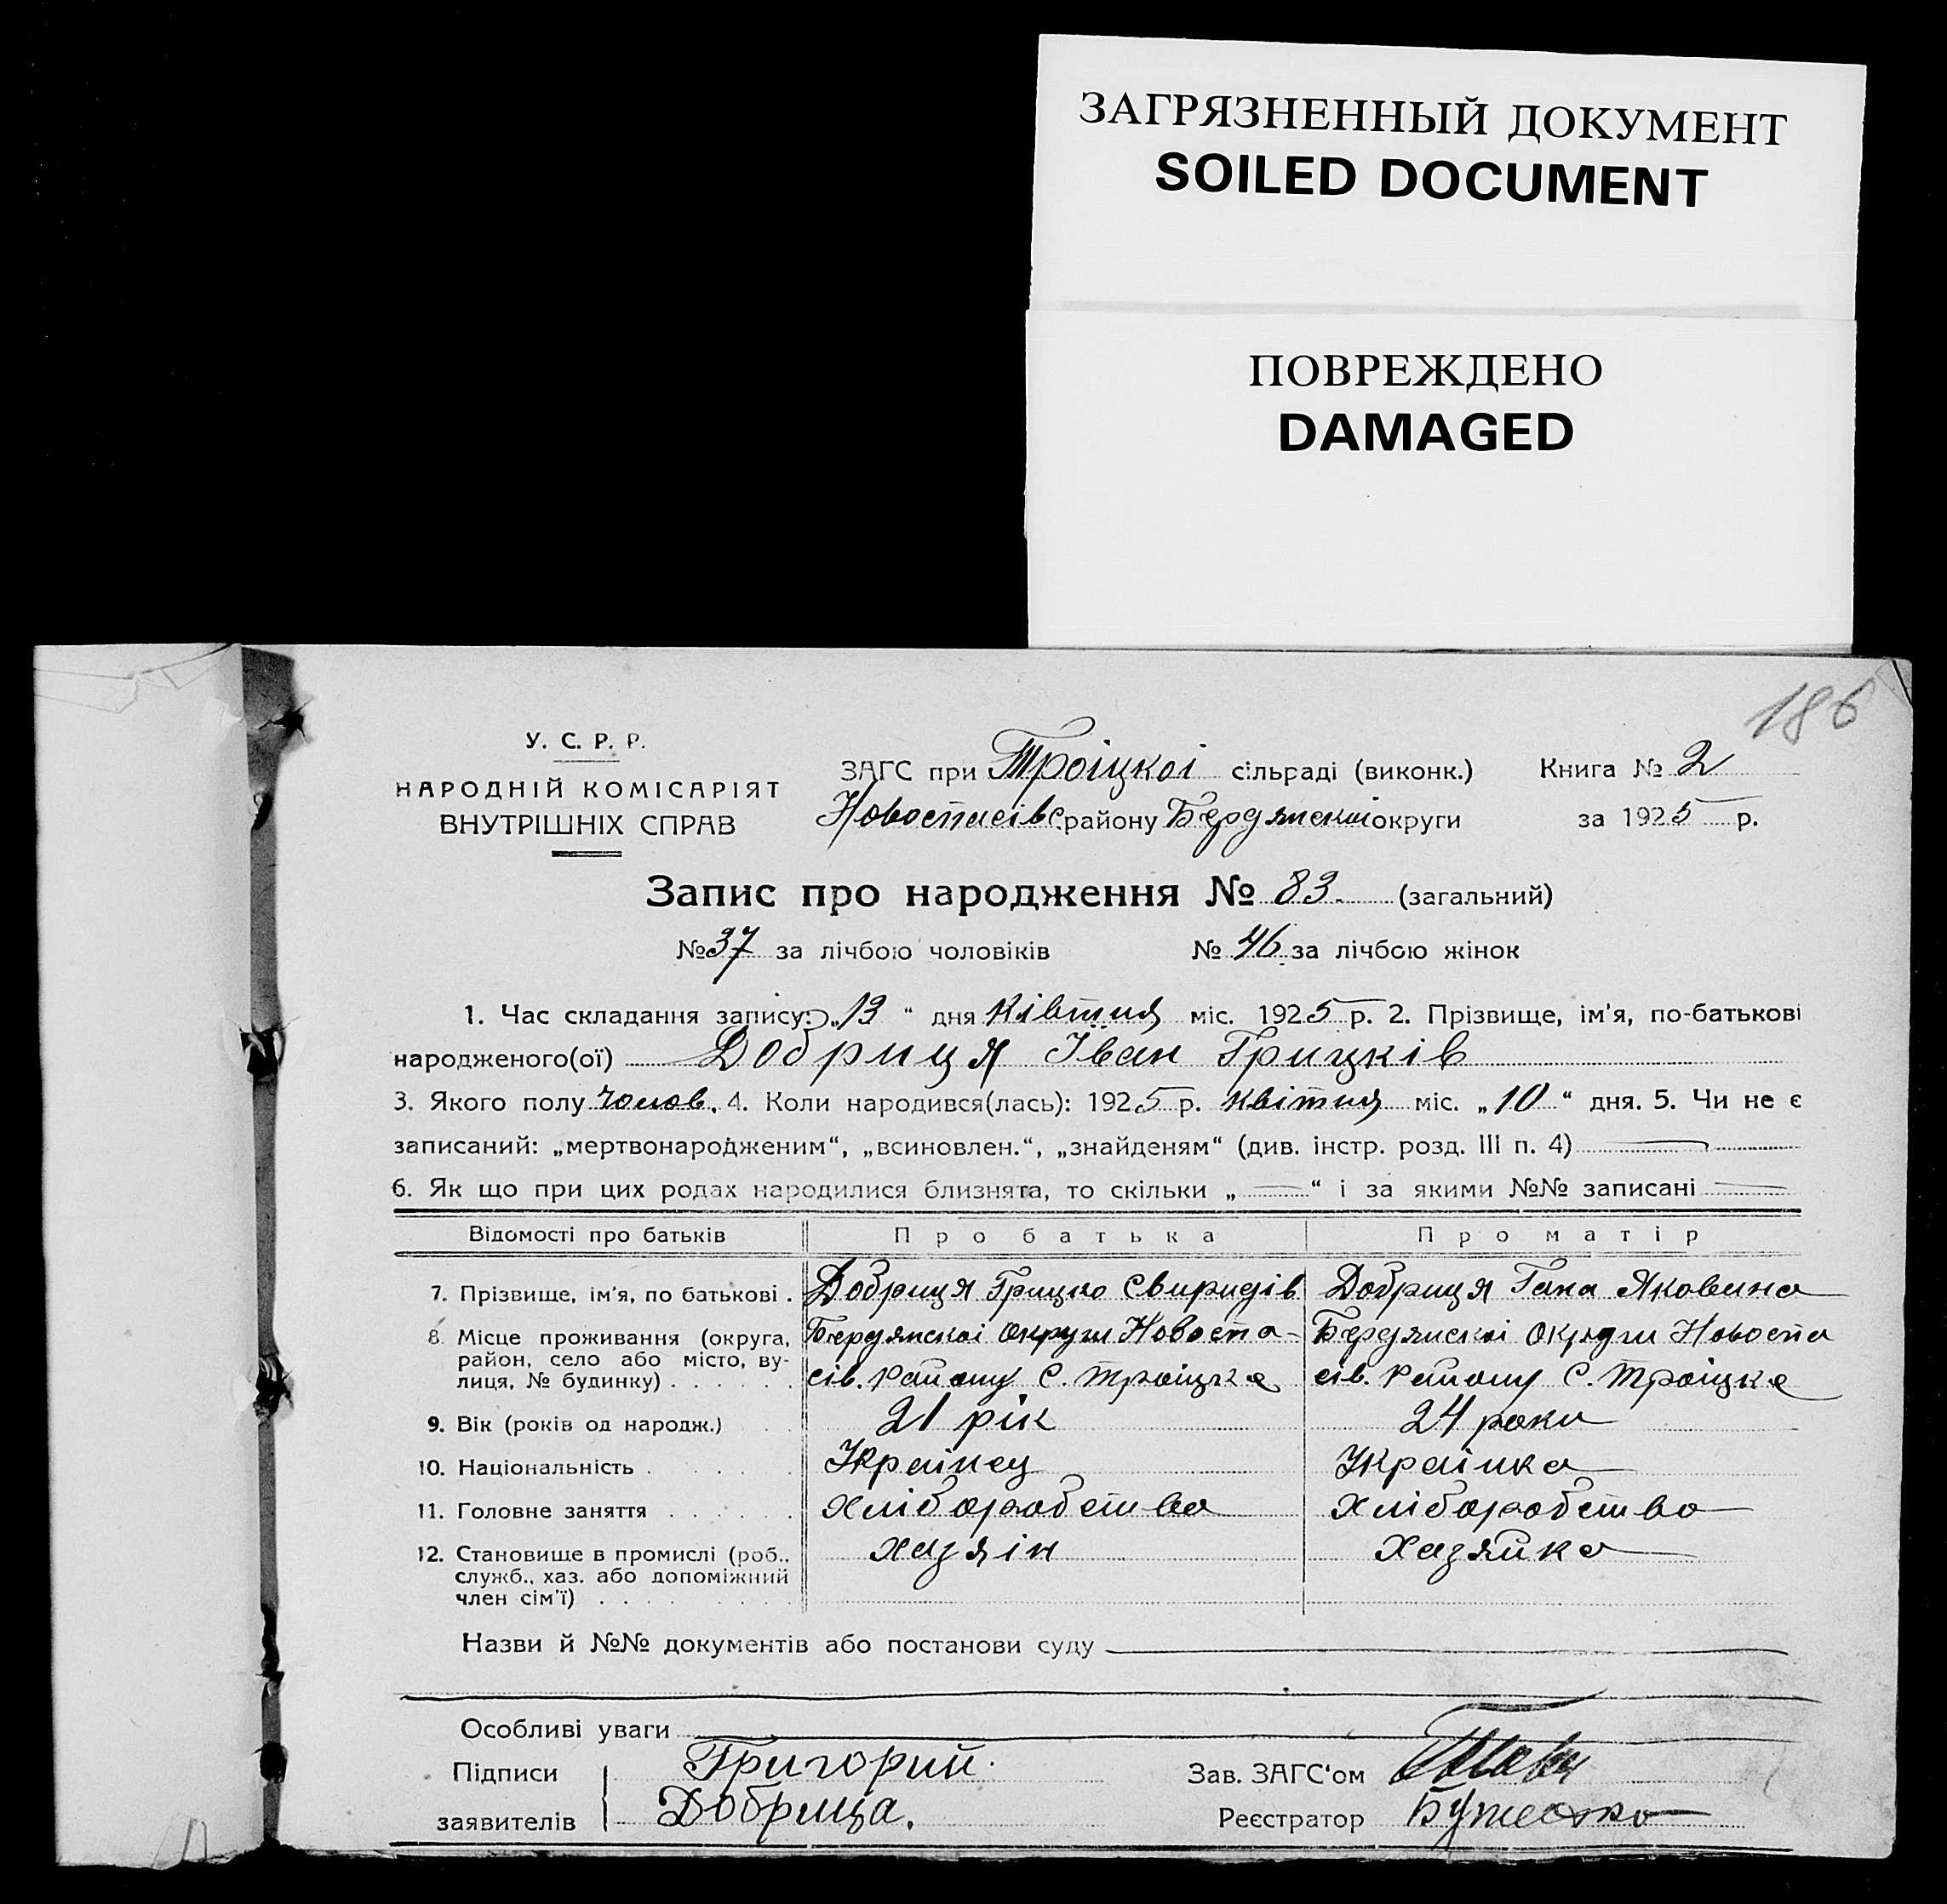 ЗАГРЯЗНЕННЫЙ ДОКУМЕНТ
SOILED DOCUMENT
ПОВРЕЖДЕНО
DAMAGED
186
У. С. Р. Р.
НАРОДНІЙ КОМІСАРІЯТ
ВНУТРІШНІХ СПРАВ
ЗАГС при Троіцкоі сільраді (виконк.) Книга № 2
Новоспасівс. району Бердянскоі округи за 1925 р.
Запис про народження № 83. (загальний)
№ 37 за лічбою чоловіків № 46 за лічбою жінок
1. Час складання запису: „13“ дня Квітня міс. 1925 р. 2. Прізвище, ім'я, по-батькові
народженого(ої) Добриця Іван Грицків
3. Якого полу чолов. 4. Коли народився(лась): 1925 р. квітня міс. „10“ дня. 5. Чи не є
записаний: „мертвонародженим“, „всиновлен.“, „знайденям“ (див. інстр. розд. III п. 4)
6. Як що при цих родах народилися близнята, то скільки „ — “ і за якими №№ записані —
Відомості про батьків Про батька Про матір
7. Прізвище, ім'я, по батькові . Добриця Грицко Свиридів Добриця Гана Яковина
8 Місце проживання (округа, район, село або місто, вулиця, № будинку) . . . . . . Бердянскоі Округи Новоспа- Бердянскоі Округи Новоспа
сів. району С. Троіцке сів. району С. Троіцке
9. Вік (років од народж.) 21 рік 24 роки
10. Національність . Украінец Украінка
11. Головне заняття . . . . . . хліборобство хліборобство
12. Становище в промислі (роб., служб., хаз. або допоміжний член сім'ї) . . . . хазяін хазяйка
Назви й №№ документів або постанови суду
Особливі уваги
Підписи Григорий. Зав. ЗАГС'ом
заявителів Добрица. Реєстратор